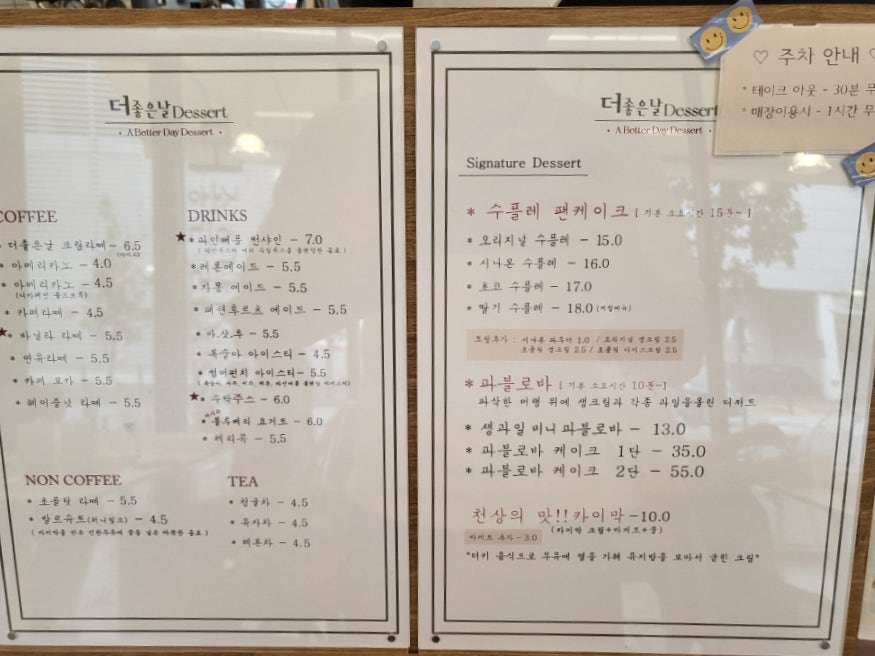 더좋은날 Dessert
· A Better Day Dessert ·
COFFEE
더좋은날 크림라떼 - 6.5
(아이스)
* 아메리카노 - 4.0
* 아메리카노 - 4.5
(디카페인 콜드브루)
* 카페라떼 - 4.5
★* 바닐라 라떼 - 5.5
* 연유라떼 - 5.5
* 카페 모카 - 5.5
* 헤이즐넛 라떼 - 5.5
NON COFFEE
* 초콜릿 라떼 - 5.5
* 발르슈트(허니밀크) - 4.5
TEA
* 자몽차 - 4.5
* 유자차 - 4.5
* 레몬차 - 4.5
DRINKS
★* 파인애플 썬샤인 - 7.0
* 레몬에이드 - 5.5
* 자몽 에이드 - 5.5
* 패션후르츠 에이드 - 5.5
* 아.샷.추 - 5.5
* 복숭아 아이스티 - 4.5
* 썸머펀치 아이스티 - 5.5
★* 수박주스 - 6.0
* 블루베리 요거트 - 6.0
* 체리콕 - 5.5
더좋은날 Dessert
· A Better Day Dessert ·
Signature Dessert
* 수플레 팬케이크 [ 기본 소요시간 15분~ ]
* 오리지널 수플레 - 15.0
* 시나몬 수플레 - 16.0
* 초코 수플레 - 17.0
* 딸기 수플레 - 18.0
토핑추가 : 시나몬 파우더 1.0 / 오리지널 생크림 2.5
초콜릿 생크림 2.5 / 초콜릿 아이스크림 2.5
* 파블로바 [ 기본 소요시간 10분~]
파삭한 머랭 위에 생크림과 각종 과일을올린 디저트
* 생과일 미니 파블로바 - 13.0
* 파블로바 케이크 1단 - 35.0
* 파블로바 케이크 2단 - 55.0
천상의 맛!! 카이막 -10.0
바게트 추가 - 3.0 (카이막 크림+바게트+꿀)
"터키 음식으로 우유에 열을 가려 유지방을 모아서 굳힌 크림"
♡ 주차 안내
* 테이크 아웃 - 30분 무
* 매장이용시 - 1시간 무